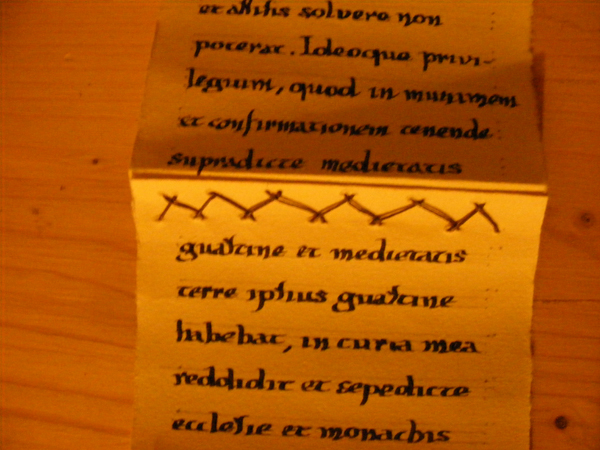 et aliis solvere non
poterat. Ideoque privi-
legium, quod in munimem
et confirmationem tenende
supradicte medietatis
guastine et medietatis
terre ipsius guastine
habebat, in curia mea
reddidit et sepedicte
ecclesie et monachis